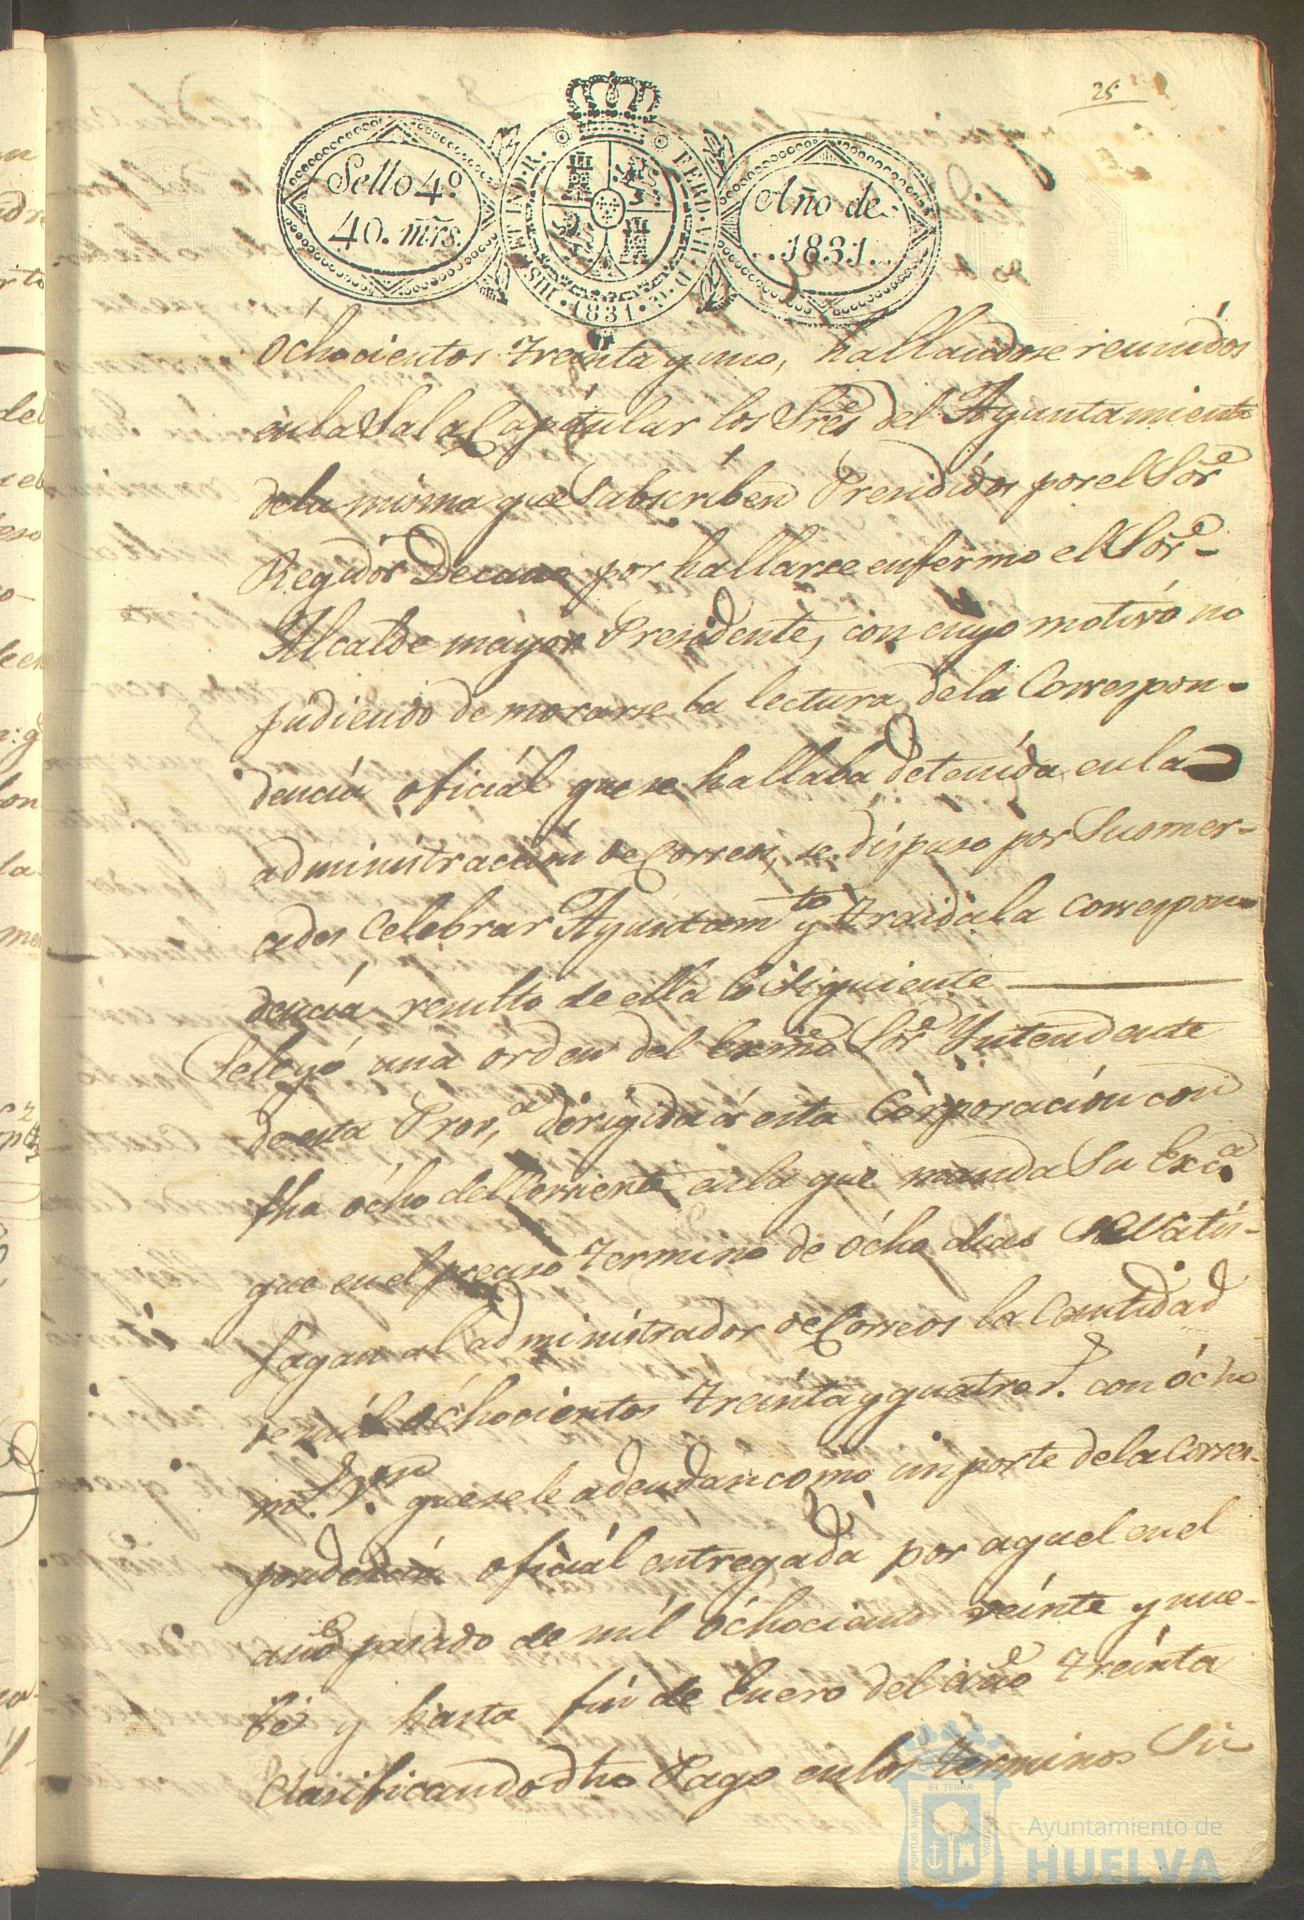 25
Sello 4º
40. mrs.
HISP. ET IND. R. FERD. VII. D. G. 1831
Año de
1831.
Ochocientos treinta y uno, hallandose reunidos
en la Sala Capitular los Sres del Ayuntamiento
de la misma que Subscriben Presididos por el Sor
Regidor Decano por hallarse enfermo el Sor
Alcalde mayor Presidente, con cuyo motivo no
pudiendo demorarse la lectura de la Correspon-
dencia oficial que se hallaba detenida en la
administracion de Correos, se dispuso por Sus mer-
cedes Celebrar Ayuntamto y traida la correspon-
dencia resulto de ella lo Siguiente
Se leyó una orden del Exmo Sor Yntendente
de esta Prova dirigida á esta Corporacion con
fha ócho del Corriente en la que manda Su Exca
que en el preciso termino de ócho dias se Satis-
fagan al administrador de Correos la Cantidad
de mil ochocientos treinta y quatro r.s con ócho
ms. Vn. que se le adeudan como importe de la Corres-
pondencia oficial entregada por aquel en el
año pasado de mil óchocientos veinte y nue-
be y hasta fin de Enero del año treinta
Clasificando dho Pago en los terminos Si-
PORTUS MARIS ET TERRAE CUSTODIA
Ayuntamiento de
HUELVA